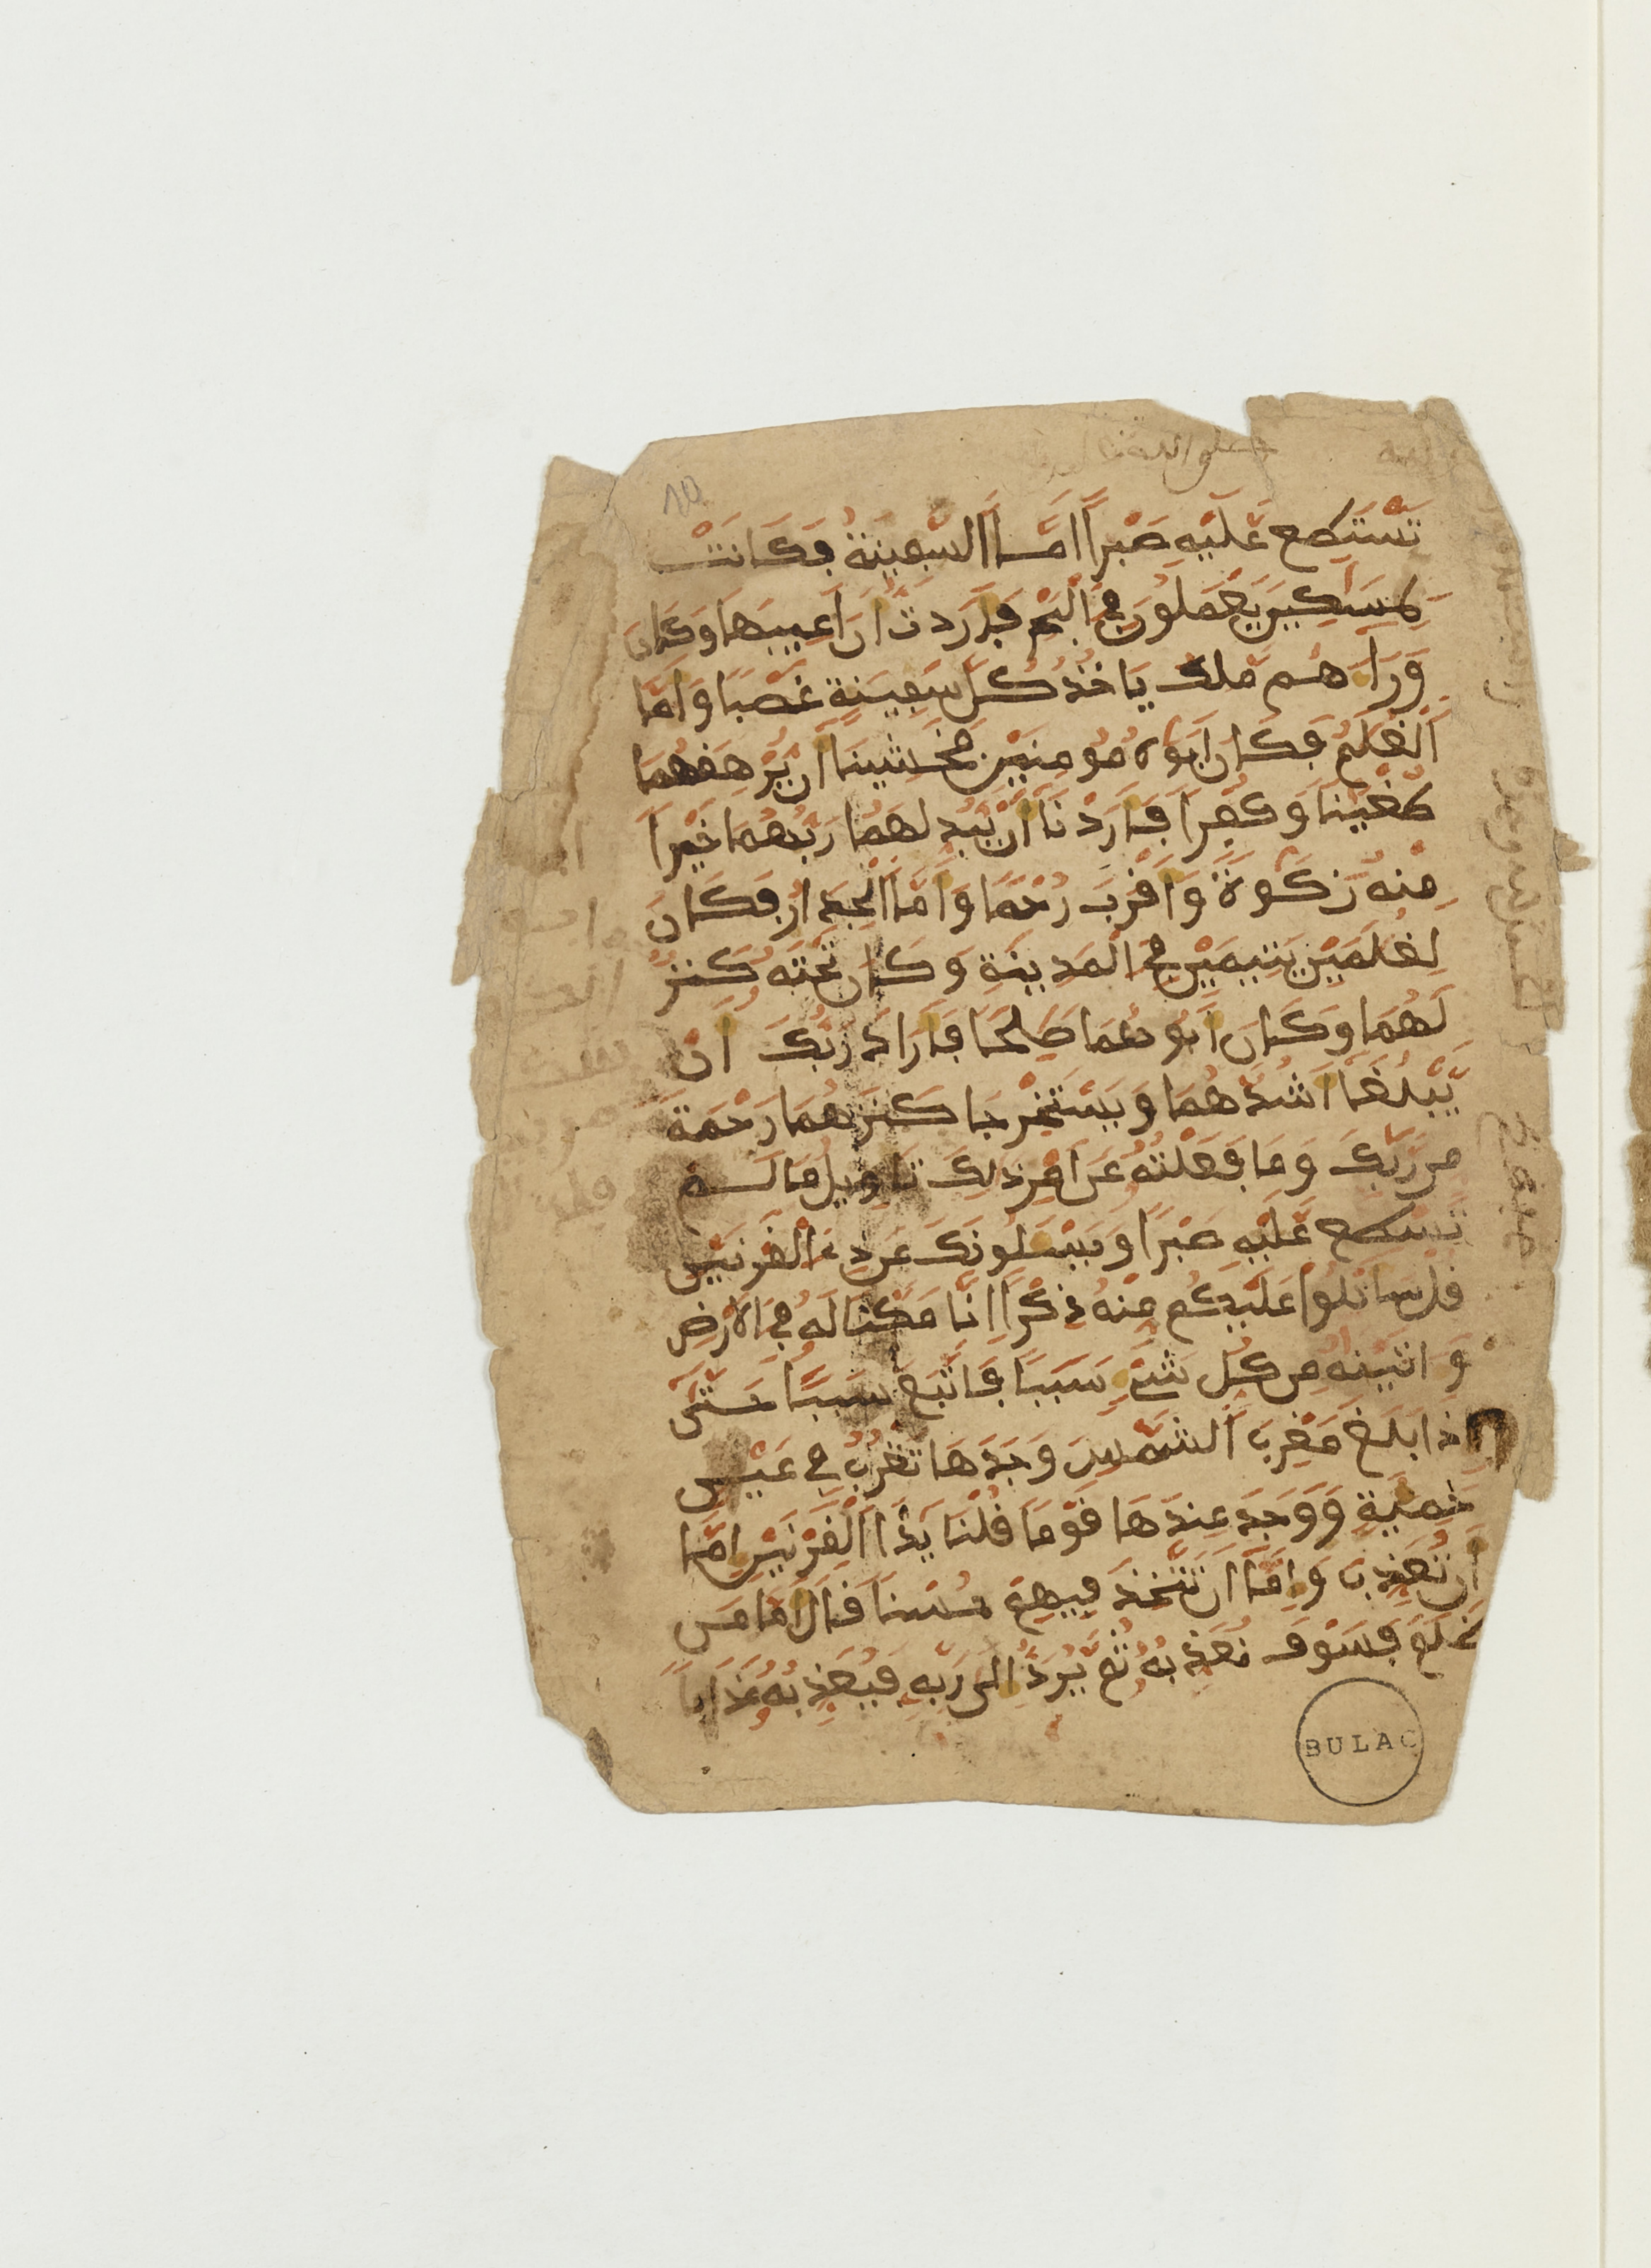 تَسْتَطِع عَّلَيْهِ صَبْراً اَمَّا اَلسَّفِينَةُ فَكَانَتْ
لِمَسَٰكِينَ يَعْمَلُونَ فِے اِلْبَحْرِ فَأَرَدتُّ أَنَ اَعِيبَهَا وَكَانَ
وَرَآءَهُم مَّلِكٌ يَاخُذُ كُلَّ سَفِينَةٍ غَصْبًا وَأَمَّا
اَلْغُلَٰمُ فَكَانَ أَبَوَٰهُ مُومِنَيْنِ فَخَشِينَا أَنْ يُّرْهِقَهُمَا
طُغْيَٰنًا وَكُفْرًا فَأَرَدْنَا أَنْ يُّبَدِّلَهُمَا رَبُّهُمَا خَيْرًا
مِّنْهُ زَكَوٰةً وَأَقْرَبَ رُحْمًا وَأَمَّا اَلْجِدَارُ فَكَانَ
لِغُلَٰمَيْنِ يَتِيمَيْنِ فِے اِلْمَدِينَةِ وَكَانَ تَحْتَهُ كَنزٌ
لَّهُمَا وَكَانَ أَبُوهُمَا صَٰلِحًا فَأَرَادَ رَبُّكَ أَنْ
يَّبْلُغَا أَشُدَّهُمَا وَيَسْتَخْرِجَا كَنزَهُمَا رَحْمَةً
مِّن رَّبِّكَ وَمَا فَعَلْتُهُ عَنَ اَمْرِے ذَٰلِكَ تَاوِيلُ مَا لَمْ
تَسْطِع عَّلَيْهِ صَبْرًا وَيَسْـَٔلُونَكَ عَن ذِے اِلْقَرْنَيْنِ
قُلْ سَأَتْلُواْ عَلَيْكُم مِّنْهُ ذِكْرًا اِنَّا مَكَّنَّا لَهُ فِے اِلَارْضِ
وَءَاتَيْنَٰهُ مِن كُلِّ شَےْءٍ سَبَبًا فَاتَّبَعَ سَبَبًا حَتَّىٰ
إِذَا بَلَغَ مَغْرِبَ اَلشَّمْسِ وَجَدَهَا تَغْرُبُ فِے عَيْنٍ
حَمِئَةٍ وَوَجَدَ عِندَهَا قَوْمًا قُلْنَا يَٰذَا اَلْقَرْنَيْنِ إِمَّا
أَن تُعَذِّبَ وَإِمَّا أَن تَتَّخِذَ فِيهِمْ حُسْنًا قَالَ أَمَّا مَن
ظَلَمَ فَسَوْفَ نُعَذِّبُهُ ثُمَّ يُرَدُّ إِلَىٰ رَبِّهِ فَيُعَذِّبُهُ عَذَابًا
BULAC